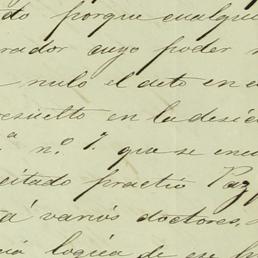 do porque cualqui
rador cuyo poder
nulo el acto en c
resuelto en la desici
a nº 7. que se enc
citado practió Paz
tá varios doctores,
logica de ese